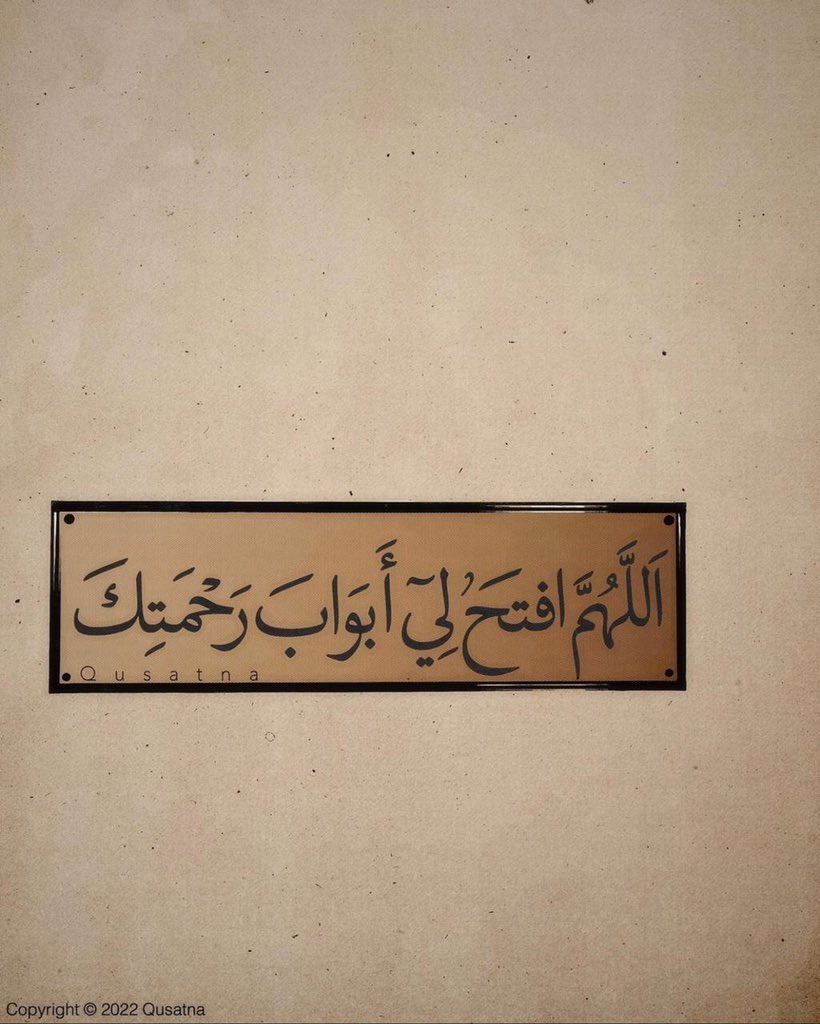 اَللَّهُمَّ افتَحْ لِيٓ أَبوَابَ رَحْمَتِكَ
Qusatna
Copyright © 2022 Qusatna